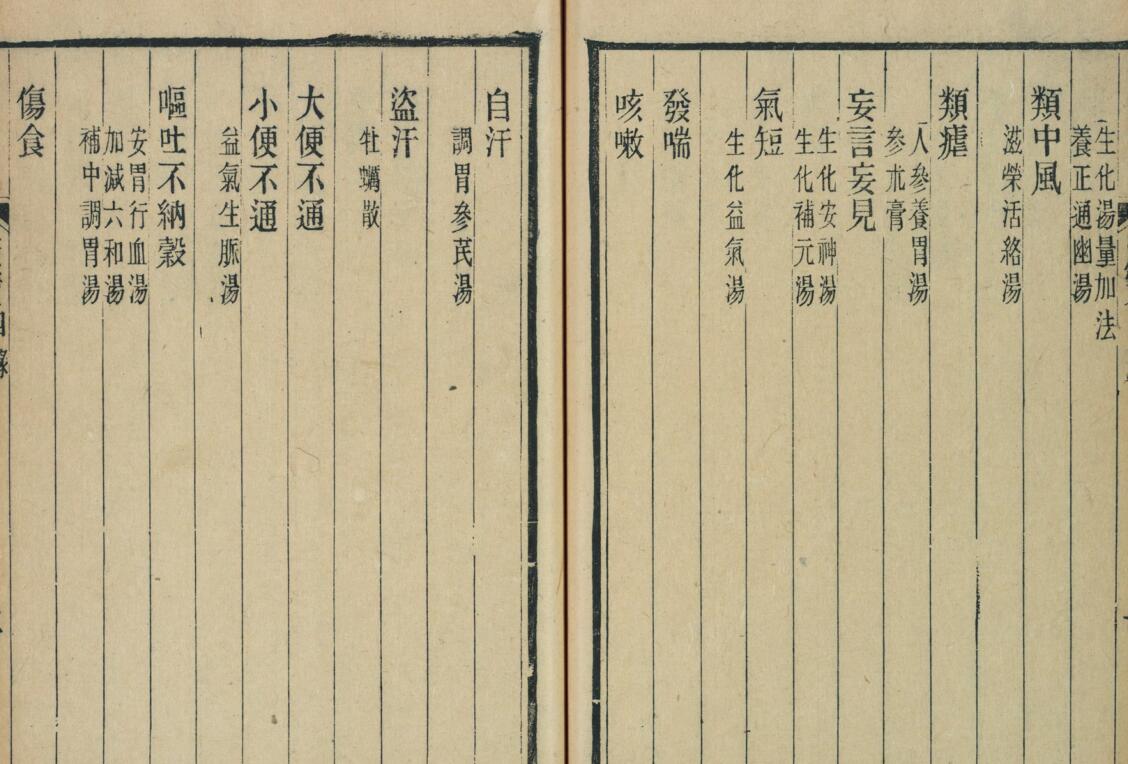 生化湯量加法
養正通幽湯
類中風
滋榮活絡湯
類瘧
人參養胃湯
參朮膏
妄言妄見
生化安神湯
生化補元湯
氣短
生化益氣湯
發喘
咳嗽
自汗
調胃參芪湯
盜汗
牡蠣散
大便不通
小便不通
益氣生脈湯
嘔吐不納穀
安胃行血湯
加減六和湯
補中調胃湯
傷食